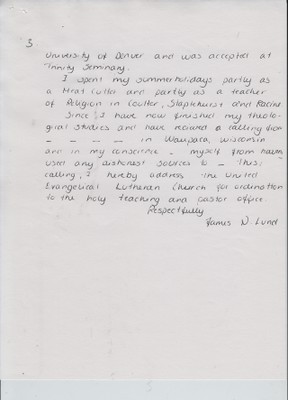 3.
University of Denver and was accepted at
Trinity Seminary.
I spent my summerholidays partly as
a Meat Cutter and partly as a teacher
of Religion in Coulter, Staplehurst and Racine.
Since, I have now finished my theolo-
gical studies and have received a calling from
_ _ _ _ in Waupaca, Wisconsin
and in my conscience _ myself from having
used any dishonest sources to _ this
calling, I hereby address the United
Evangelical Lutheran Church for ordination
to the holy teaching and pastor office.
Respectfully
James N. Lund